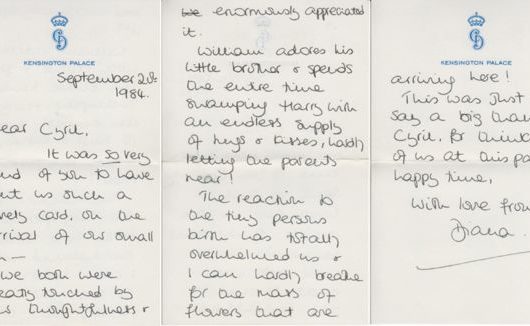 KENSINGTON PALACE
September 20th
1984.
ear Cyril,
It was so very
nd of you to have
nt us such a
vely card, on the
rrival of our small
n—
we both were
eatly touched by
ur thoughtfulness &
we enormously appreciated
it.
William adores his
little brother & spends
the entire time
swamping Harry with
an endless supply
of hugs & kisses, hardly
letting the parents
near!
The reaction to
one tiny persons
birth has totally
overwhelmed us &
I can hardly breathe
for the mass of
flowers that are
KENSINGTON PALACE
arriving here!
This was just
say a big than
Cyril, for thinki
of us at this pa
happy time,
with love from
Diana.